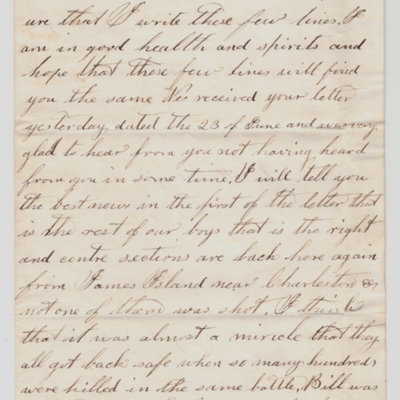 ure that I write these few lines. I
am in good health and spirits and
hope that these few lines will find
you the same We received your letter
yesterday dated the 23 of June and was very
glad to hear from you not having heard
from you in some time. I will tell you
the best news in the first of the letter that
is the rest of our boys that is the right
and centre sections are back here again
from James Island near Charleston &
not one of them was shot. I think
that it was almost a miricle that they
all got back safe when so many hundreds
were killed in the same battle, Bill was